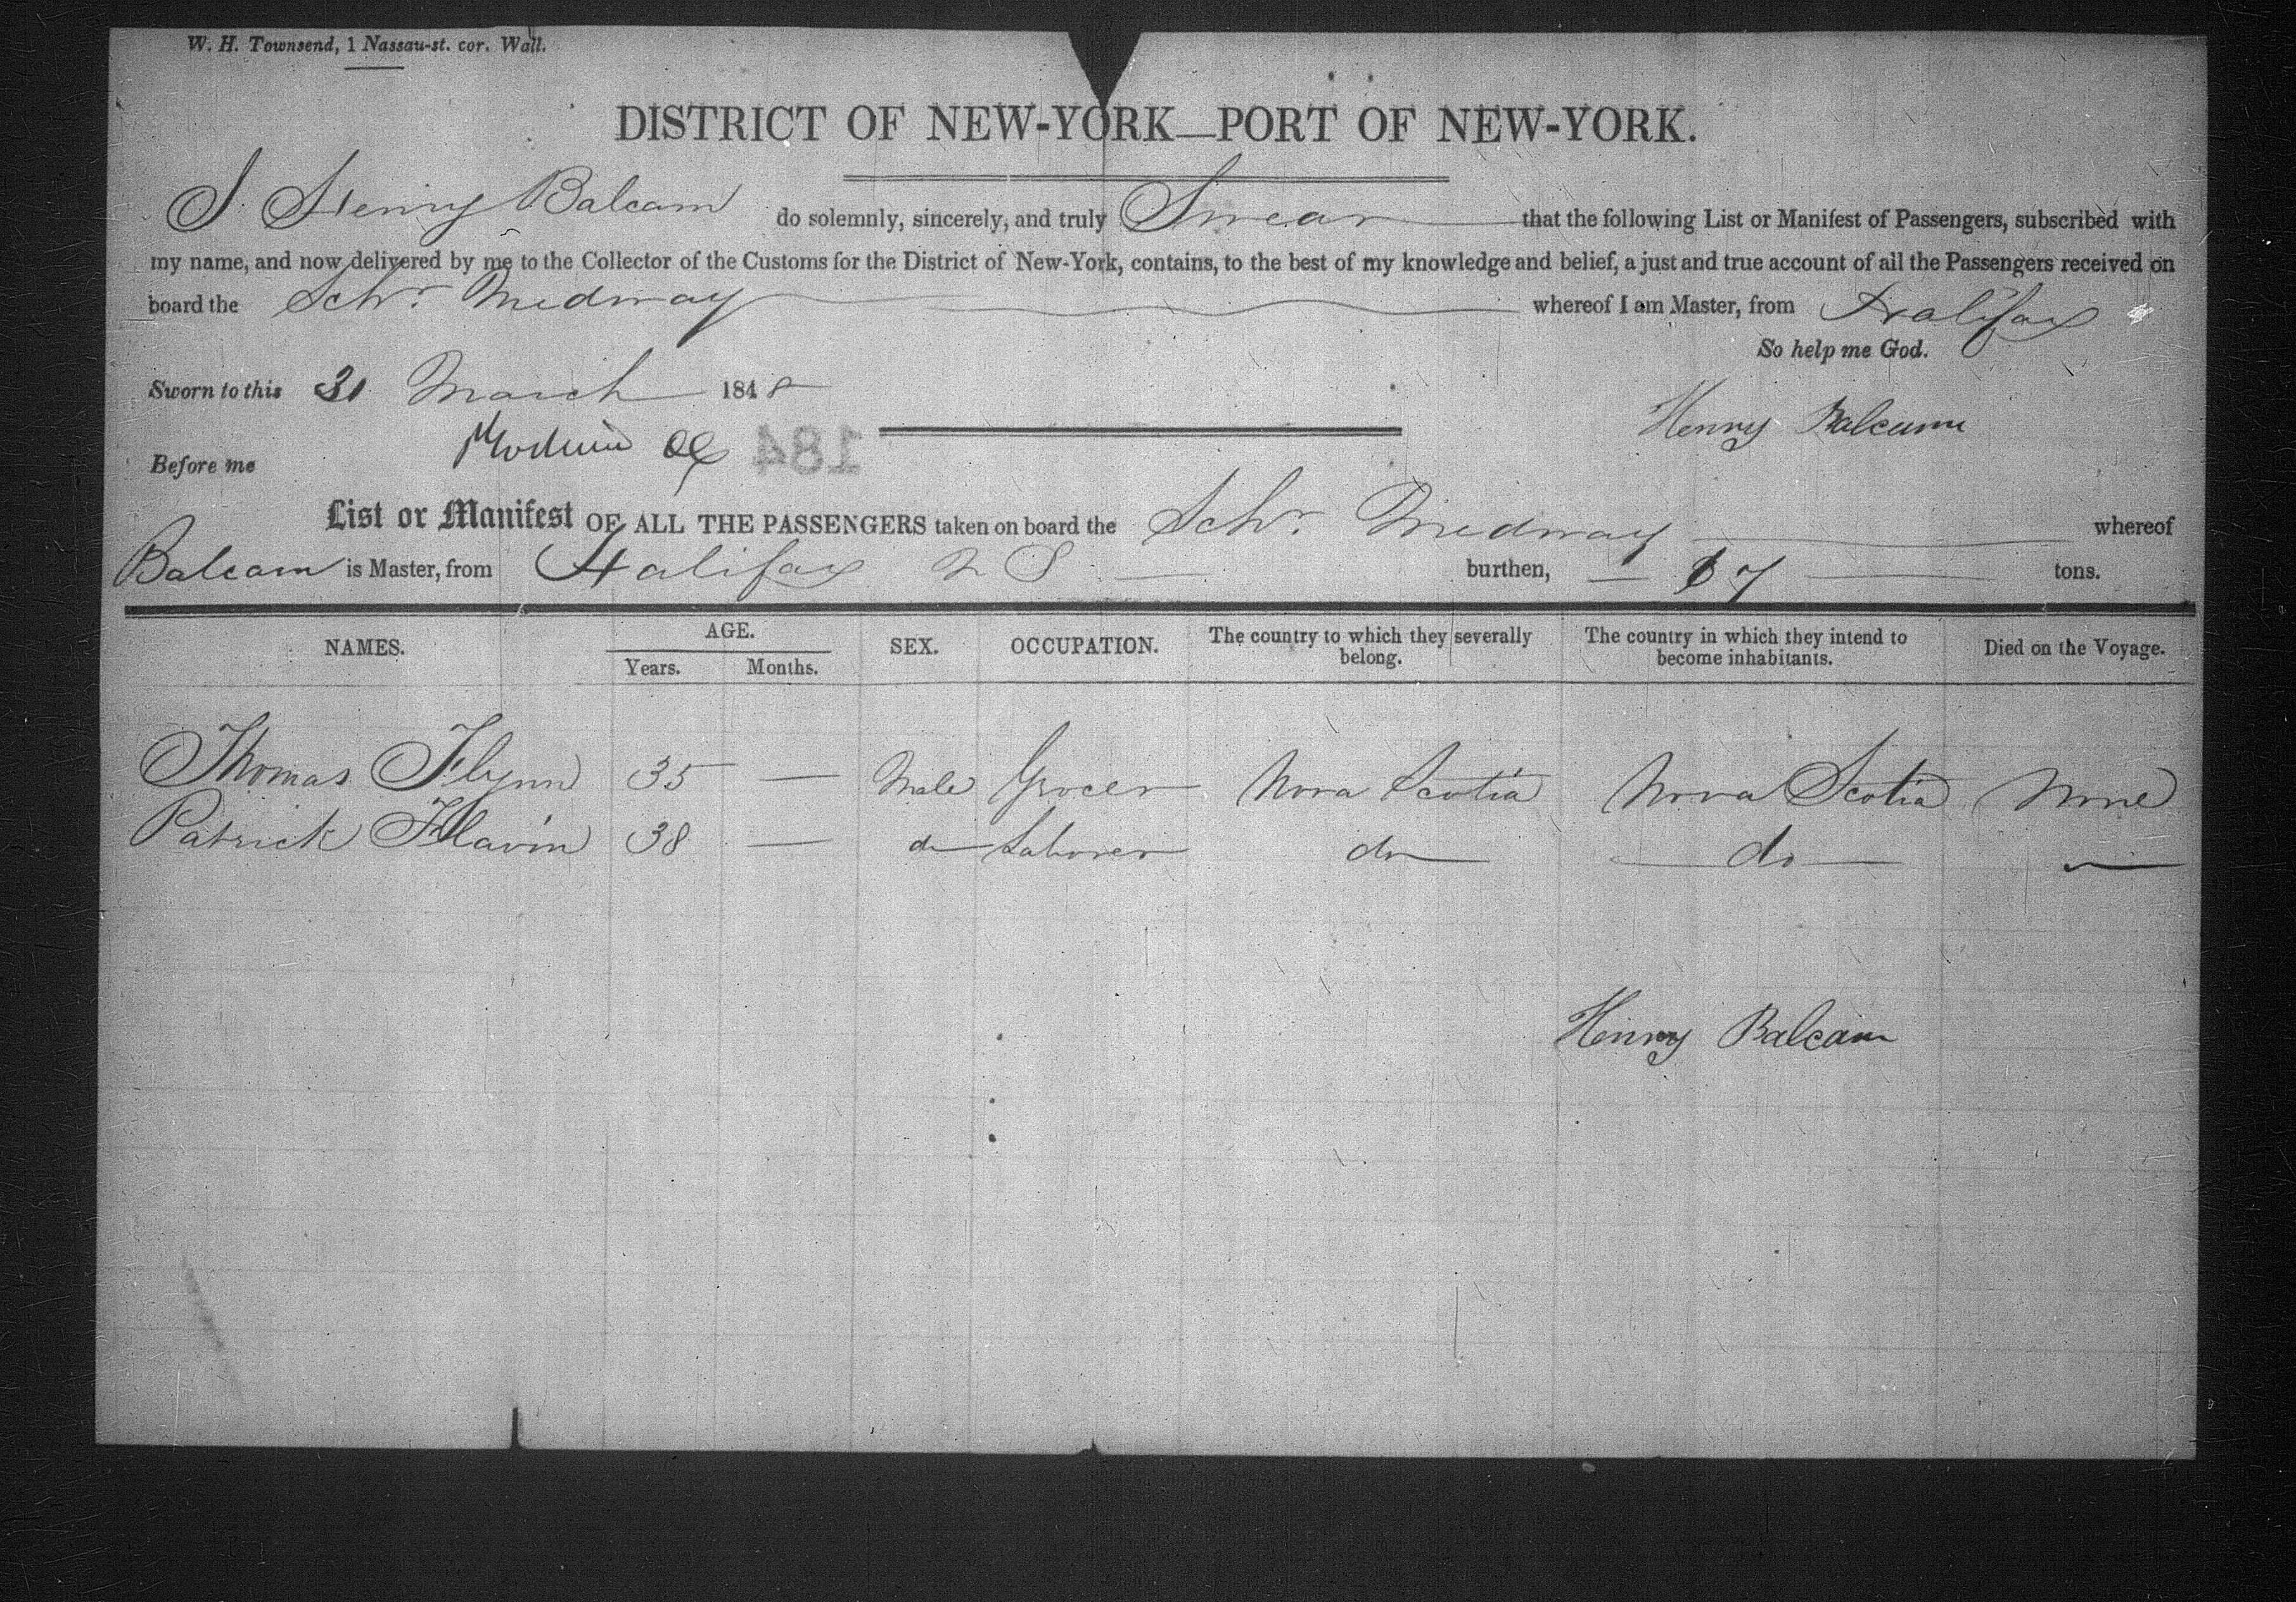 W. H. Townsend, 1 Nassau-st. cor. Wall.
DISTRICT OF NEW-YORK—PORT OF NEW-YORK.
I Henry Balcam do solemnly, sincerely, and truly Swear that the following List or Manifest of Passengers, subscribed with
my name, and now delivered by me to the Collector of the Customs for the District of New-York, contains, to the best of my knowledge and belief, a just and true account of all the Passengers received on
board the Schr. Medway whereof I am Master, from Halifax
So help me God.
Sworn to this 31 March 1848
Henry Balcam
Before me
184
List or Manifest OF ALL THE PASSENGERS taken on board the Schr. Medway whereof
Balcam is Master, from Halifax N S burthen, 67 tons.
NAMES. AGE. SEX. OCCUPATION. The country to which they severally belong. The country in which they intend to become inhabitants. Died on the Voyage.
Years. Months.
Thomas Flynn 35 — Male Grocer Nova Scotia Nova Scotia None
Patrick Flavin 38 — do Laborer do do —
Henry Balcam